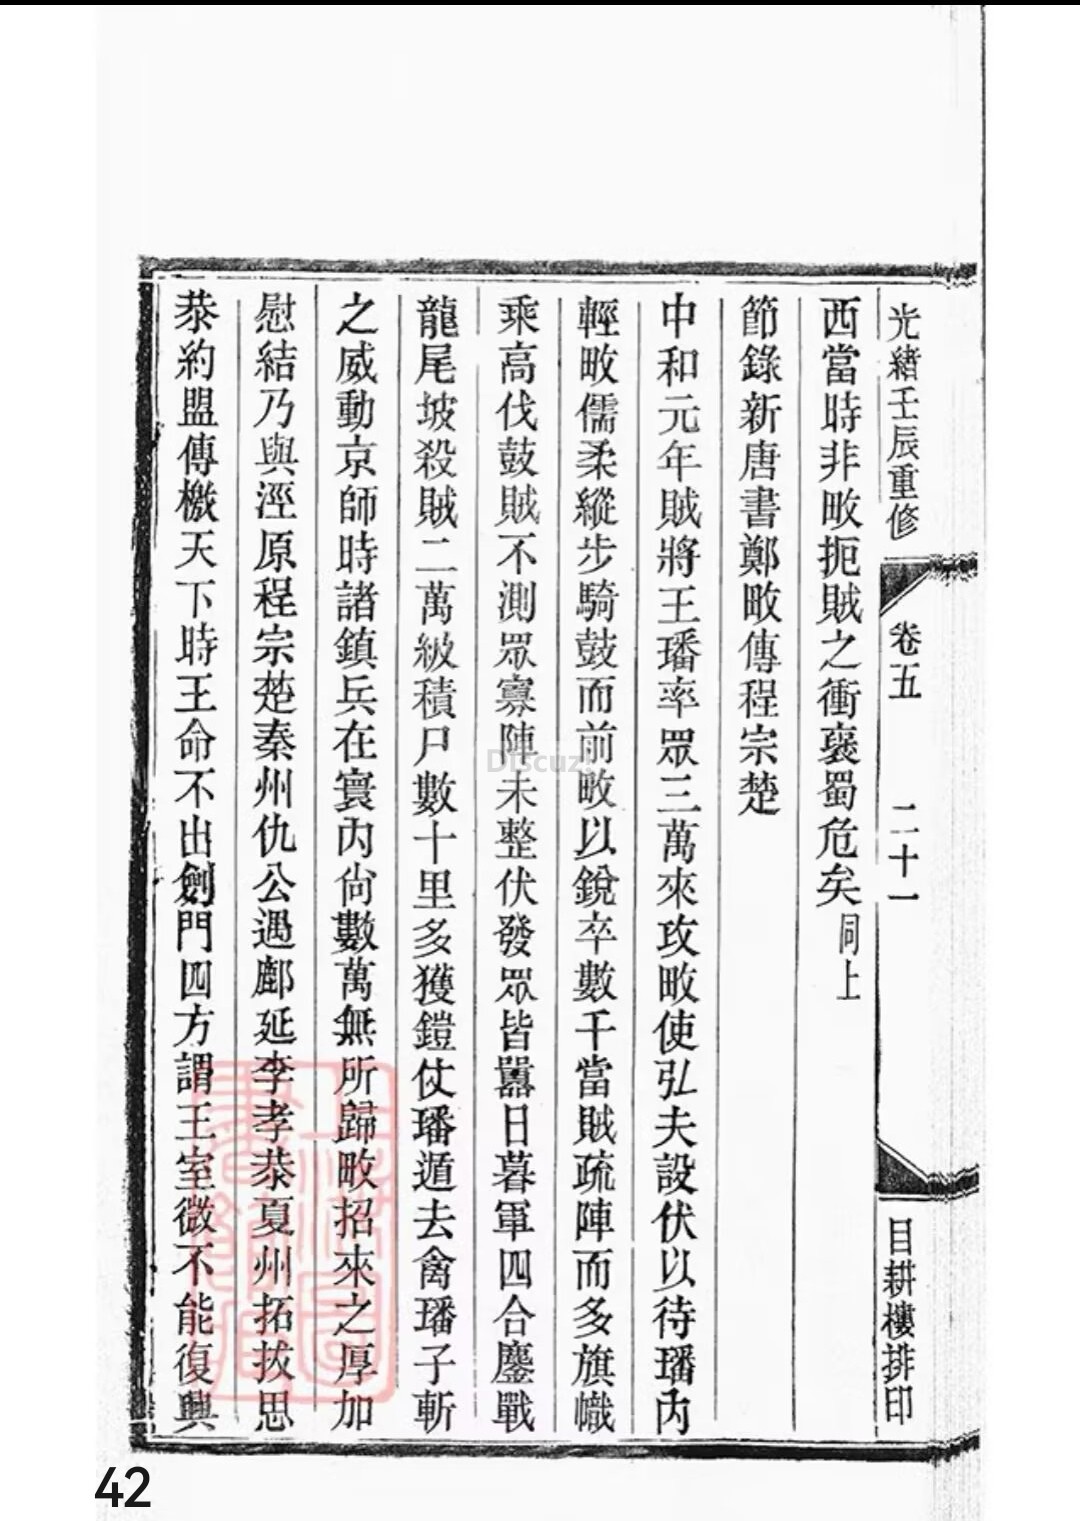 光緒壬辰重修 卷五 二十一 目耕樓排印
西當時非畋扼賊之衝褒蜀危矣同上
節錄新唐書鄭畋傳程宗楚
中和元年賊將王璠率眾三萬來攻畋使弘夫設伏以待璠內
輕畋儒柔縱步騎鼓而前畋以銳卒數千當賊疏陣而多旗幟
乘高伐鼓賊不測眾寡陣未整伏發眾皆囂日暮軍四合鏖戰
龍尾坡殺賊二萬級積尸數十里多獲鎧仗璠遁去禽璠子斬
之威動京師時諸鎮兵在寰內尙數萬無所歸畋招來之厚加
慰結乃與涇原程宗楚秦州仇公遇鄜延李孝恭夏州拓拔思
恭約盟傳檄天下時王命不出劍門四方謂王室微不能復興
Discuz!
42